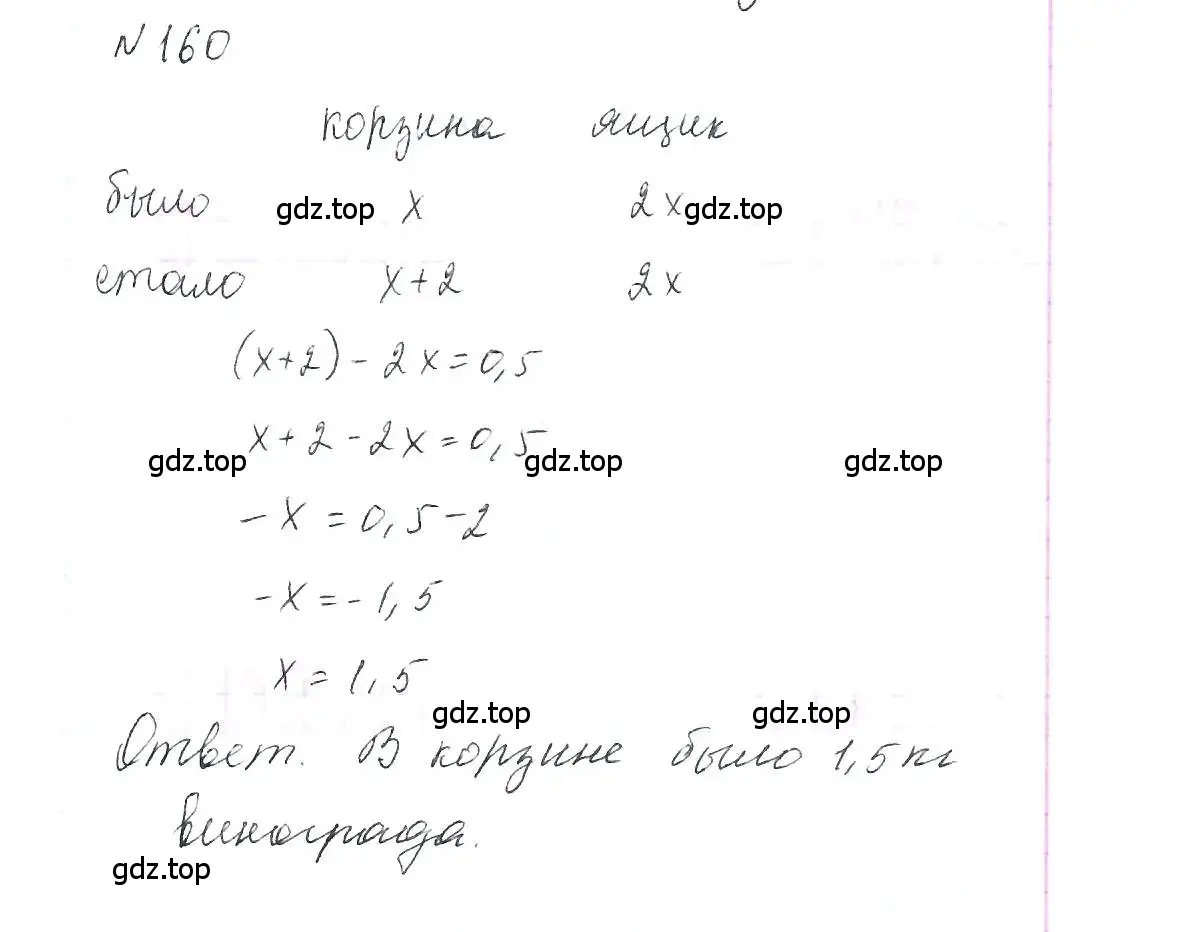 N 160
корзина ящик
было gdz.top x 2x gdz.top
стало x+2 2x
(x+2)-2x=0,5
x+2-2x=0,5
gdz.top gdz.top gdz.top
-x=0,5-2
-x=-1,5
x=1,5
gdz.top gdz.top
Ответ. В корзине было 1,5 кг
винограда.
gdz.top